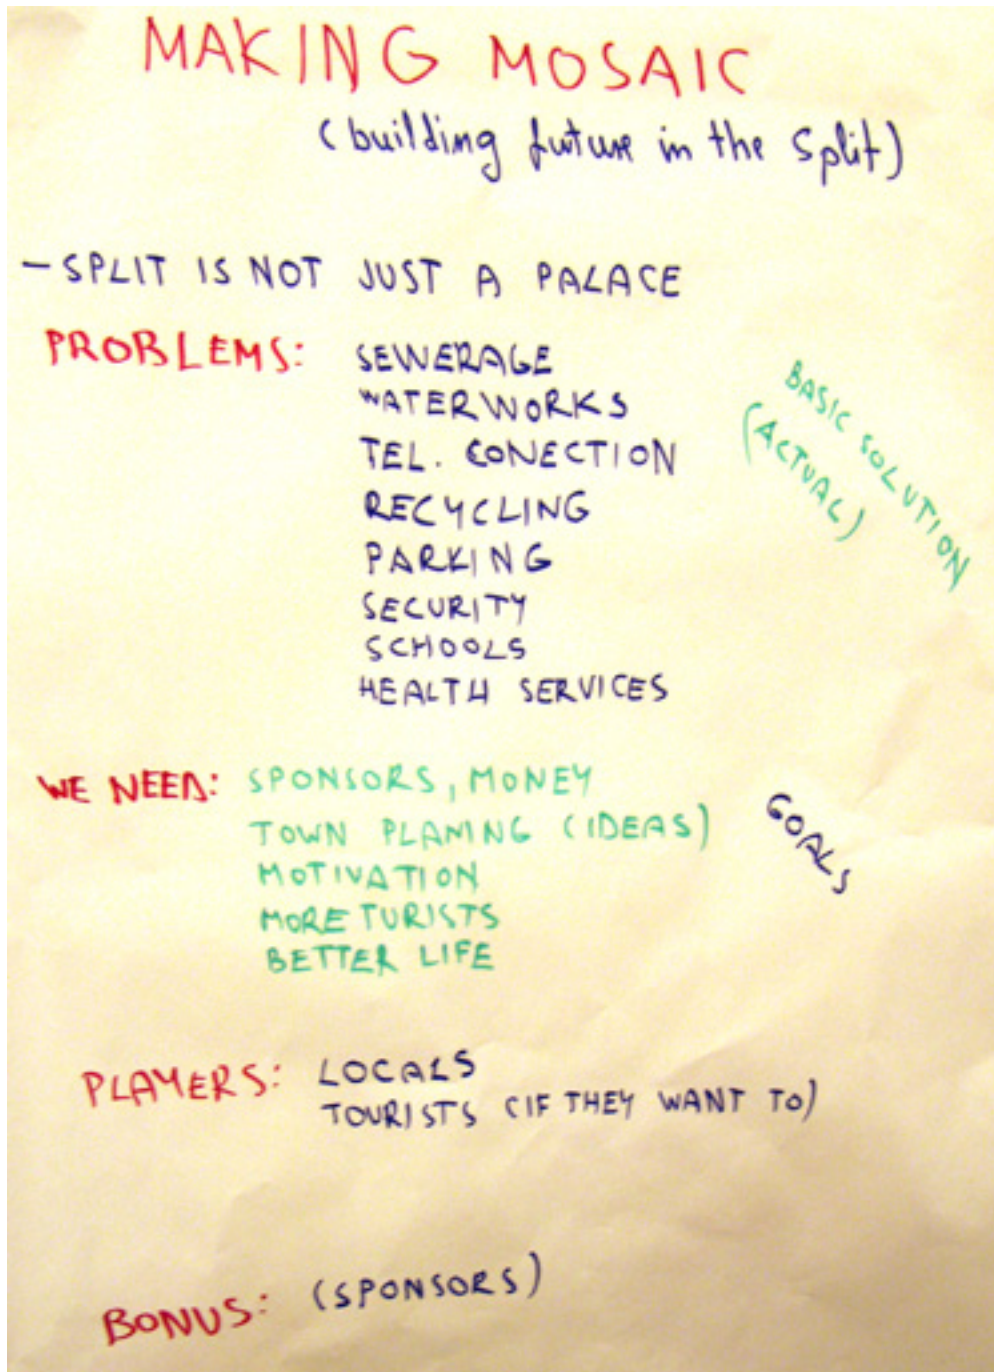 MAKING MOSAIC
(building future in the Split)
- SPLIT IS NOT JUST A PALACE
PROBLEMS: SEWERAGE
WATERWORKS
TEL. CONECTION
RECYCLING
PARKING
SECURITY
SCHOOLS
HEALTH SERVICES
BASIC SOLUTION
(ACTUAL)
WE NEED: SPONSORS, MONEY
TOWN PLANING (IDEAS)
MOTIVATION
MORE TURISTS
BETTER LIFE
GOALS
PLAYERS: LOCALS
TOURISTS (IF THEY WANT TO)
BONUS: (SPONSORS)